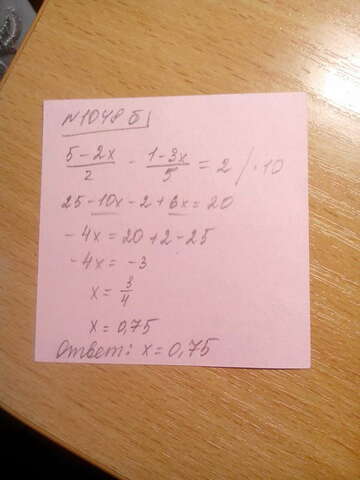 №1048 б
5-2x/2 - 1-3x/5 = 2 /·10
25-10x-2+6x=20
-4x=20+2-25
-4x= -3
x= 3/4
x=0,75
Ответ: x=0,75